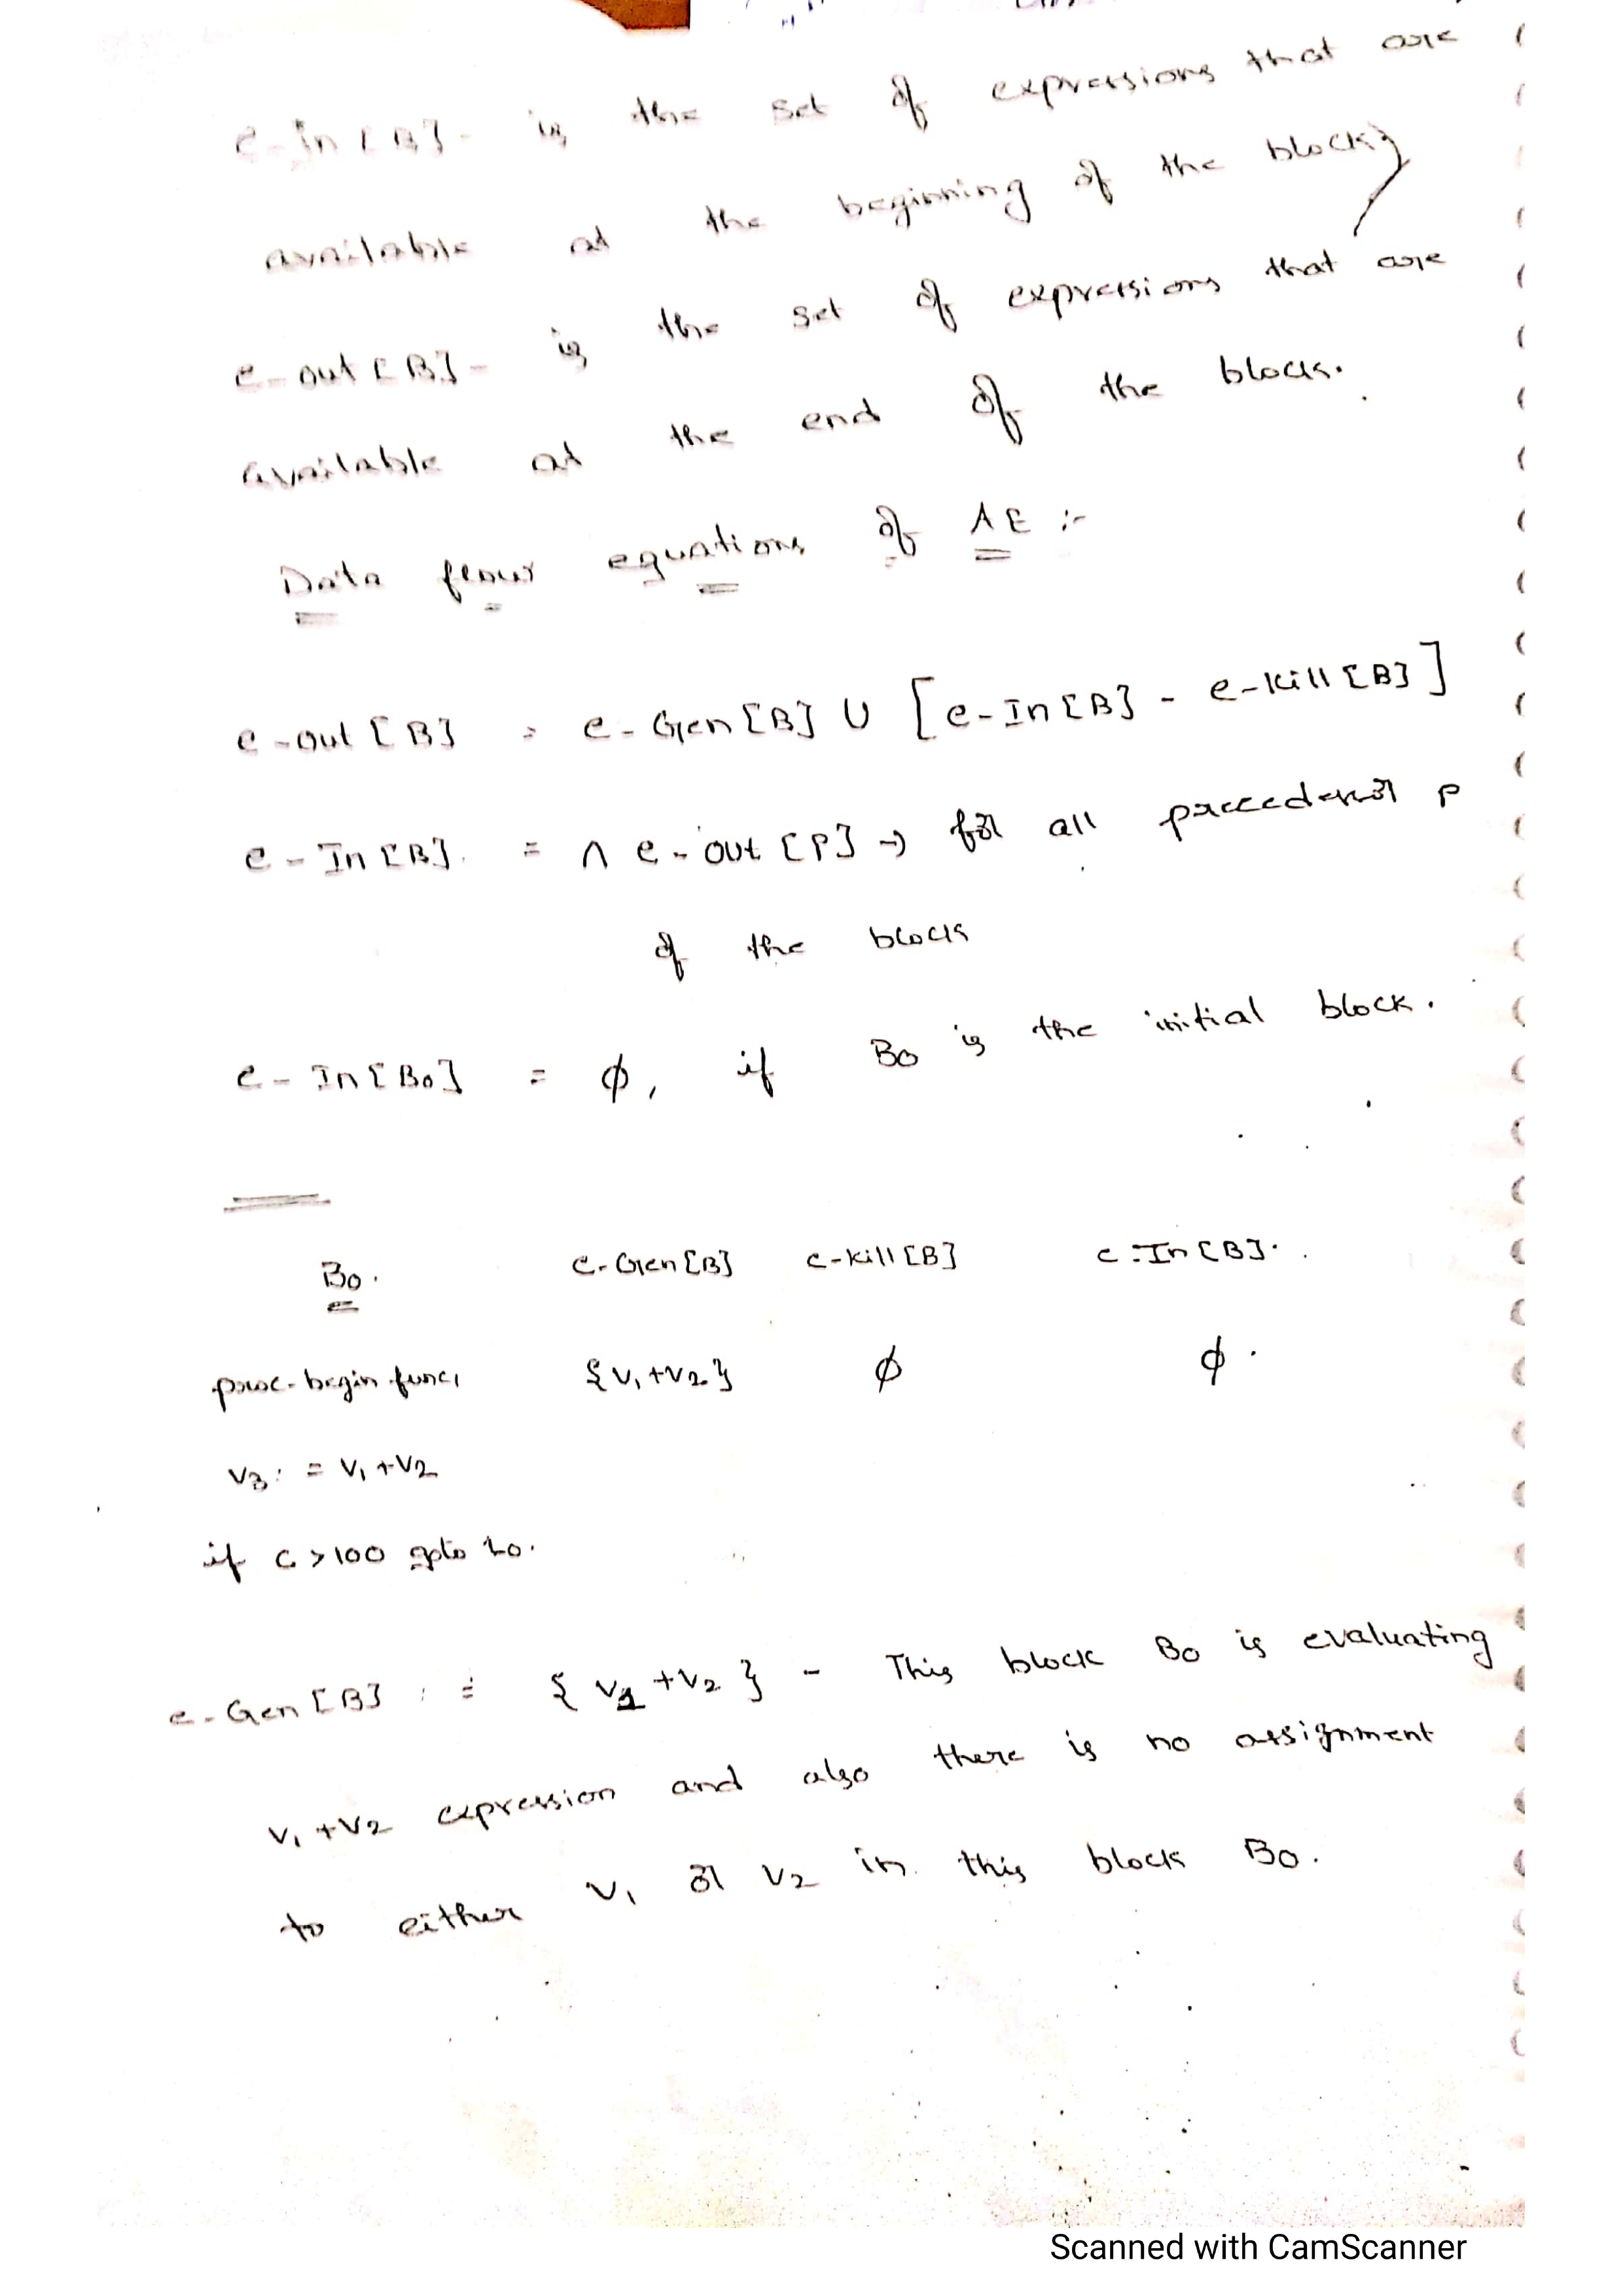 e-In [B] - is the set of expressions that are
available at the beginning of the block,
e-out [B] - is the set of expressions that are
available at the end of the block.
Data flow equations of AE :-
e-out [B] = e-Gen [B] ∪ [e-In [B] - e-kill [B]]
e-In [B] = ∩ e-out [P] → for all precedenor P
of the block
e-In [B0] = ϕ, if B0 is the initial block.
B0. e-Gen [B] e-kill [B] e-In [B].
proc-begin func1 {v1+v2} ϕ ϕ.
v3 := v1+v2
if c >100 goto L0.
e-Gen [B] := {v1+v2} - This block B0 is evaluating
v1+v2 expression and also there is no assignment
to either v1 or v2 in this block B0.
Scanned with CamScanner